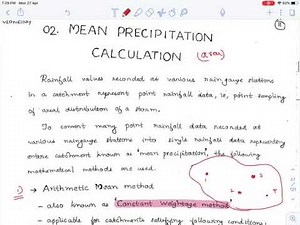 7:59 PM Mon 27 Apr
WEDNESDAY
02. MEAN PRECIPITATION
CALCULATION (areal)
Rainfall values recorded at various raingauge stations
in a catchment represent point rainfall data, ie, point sampling
of areal distribution of a storm.
To convert many point rainfall data recorded at
various raingauge stations into single rainfall data representing
entire catchment known as mean precipitation, the following
mathematical methods are used.
1) → Arithmetic Mean method
- also known as Constant Weightage method
- applicable for catchments satisfying following conditions: